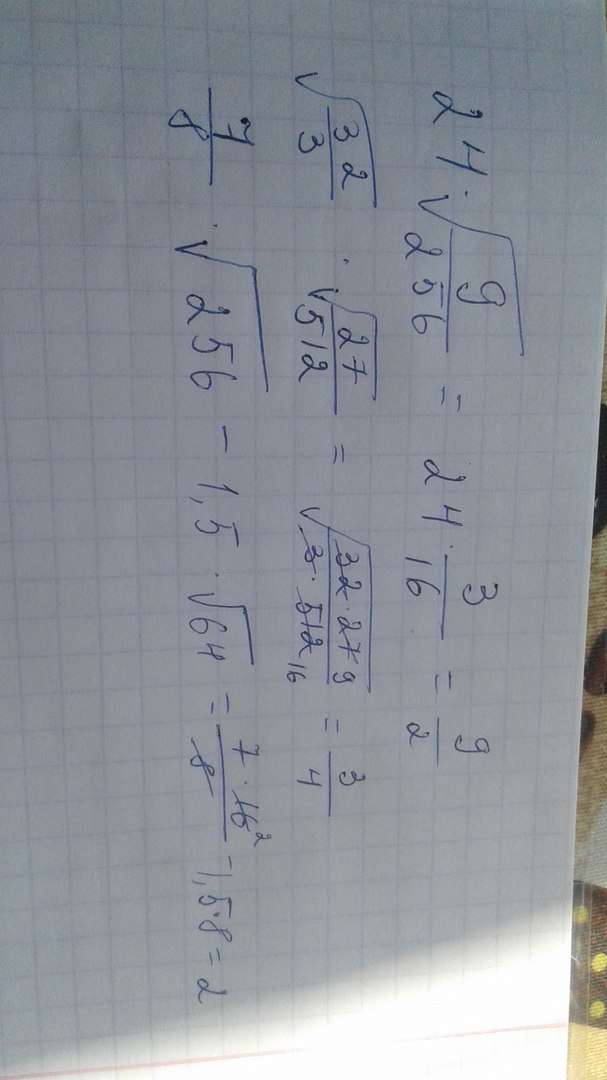 24 · √(9/256) = 24 · 3/16 = 9/2
√(32/3) · √(27/512) = √(32 · 27 9/3 · 512 16) = 3/4
7/8 · √256 − 1,5 · √64 = 7 · 16 2/8 − 1,5 · 8 = 2